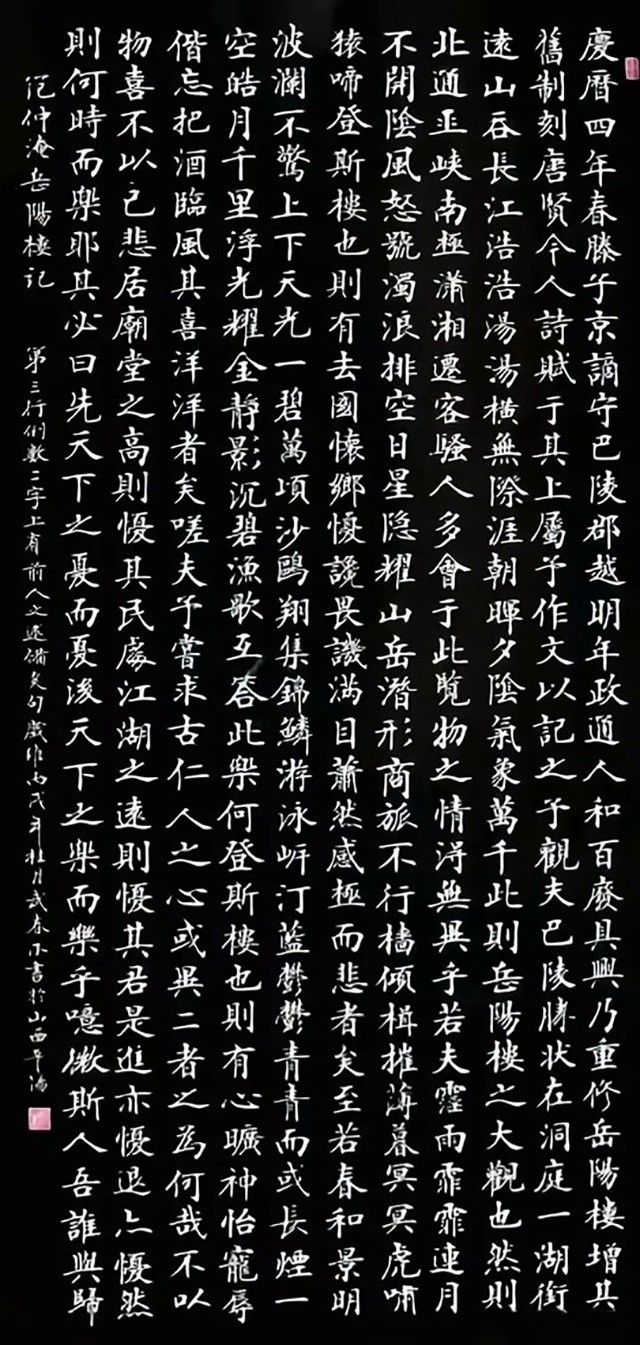 慶曆四年春滕子京謫守巴陵郡越明年政通人和百廢具興乃重修岳陽樓增其
舊制刻唐賢今人詩賦于其上屬予作文以記之予觀夫巴陵勝狀在洞庭一湖銜
遠山吞長江浩浩湯湯橫無際涯朝暉夕陰氣象萬千此則岳陽樓之大觀也然則
北通巫峽南極瀟湘遷客騷人多會于此覽物之情淂無異乎若夫霪雨霏霏連月
不開陰風怒號濁浪排空日星隱耀山岳潛形商旅不行檣傾楫摧薄暮冥冥虎嘯
猿啼登斯樓也則有去國懷鄉懮讒畏譏滿目蕭然感極而悲者矣至若春和景明
波瀾不驚上下天光一碧萬頃沙鷗翔集錦鱗游泳岍汀藍鬱鬱青青而或長煙一
空皓月千里浮光耀金靜影沉碧漁歌互答此樂何登斯樓也則有心曠神怡寵辱
偕忘把酒臨風其喜洋洋者矣嗟夫予嘗求古仁人之心或異二者之為何哉不以
物喜不以己悲居廟堂之高則懮其民處江湖之遠則懮其君是進亦懮退亦懮然
則何時而樂耶其必曰先天下之憂而憂後天下之樂而樂乎噫微斯人吾誰與歸
范仲淹岳陽樓記 第三行倒數二字上有前人之述備矣句 丙戌年桂月武春 書於山西平